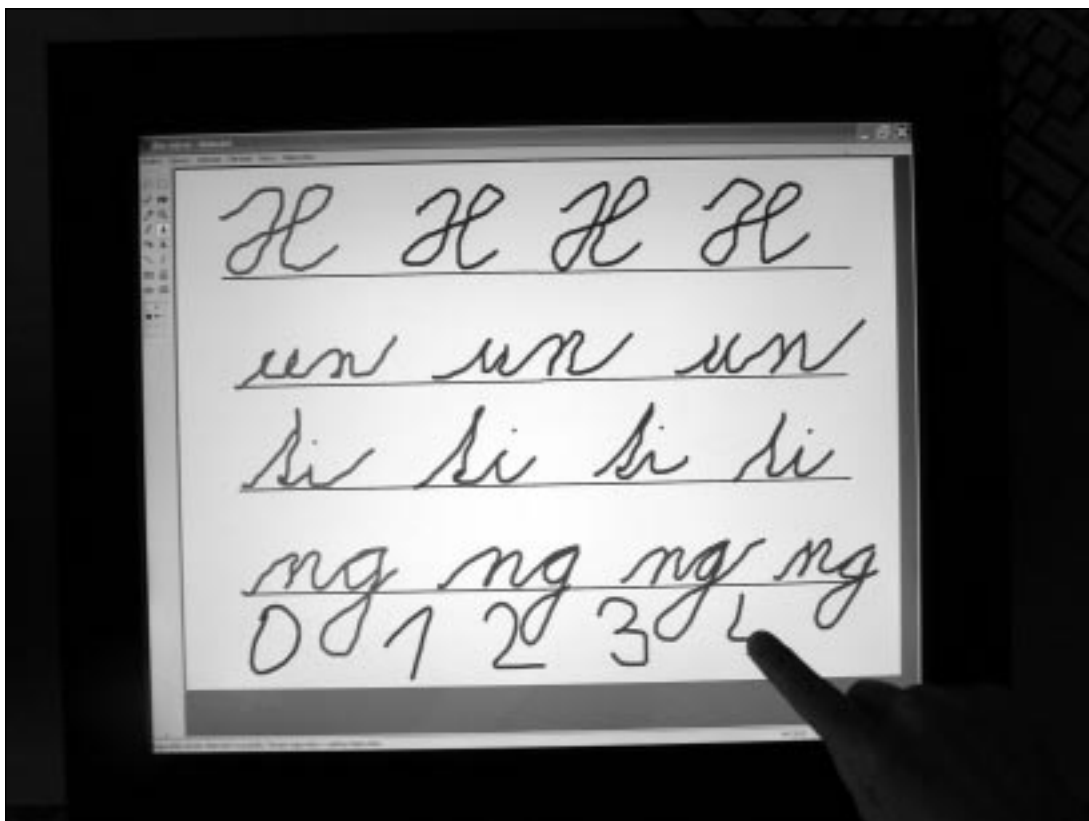 H H H H
un un un
si si si si
ng ng ng ng
0 1 2 3 4